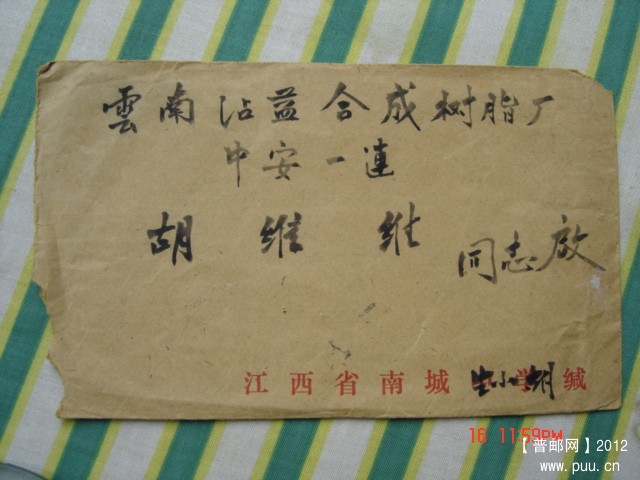 雲南沾益合成树脂厂
中安一連
胡维维 同志啟
江西省南城 学 缄
小胡
16 11:59PM
【普邮网】2012
www.puu.cn